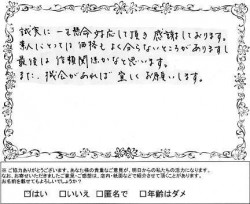 誠実に一生懸命対応して頂き感謝しております。
素人にとっては価格もよく分らないところがありますし
最後は信頼関係かなと思います。
また、機会があれば宜しくお願いします。
※ご協力ありがとうございます。あなた様の貴重なご意見が、明日からの私たちの活力になります。
なお、お寄せいただきましたご意見・ご感想は、店内・紙面などで紹介させて頂くことがあります。
お名前を載せてもよろしいでしょうか?
□はい □いいえ □匿名で □年齢はダメ